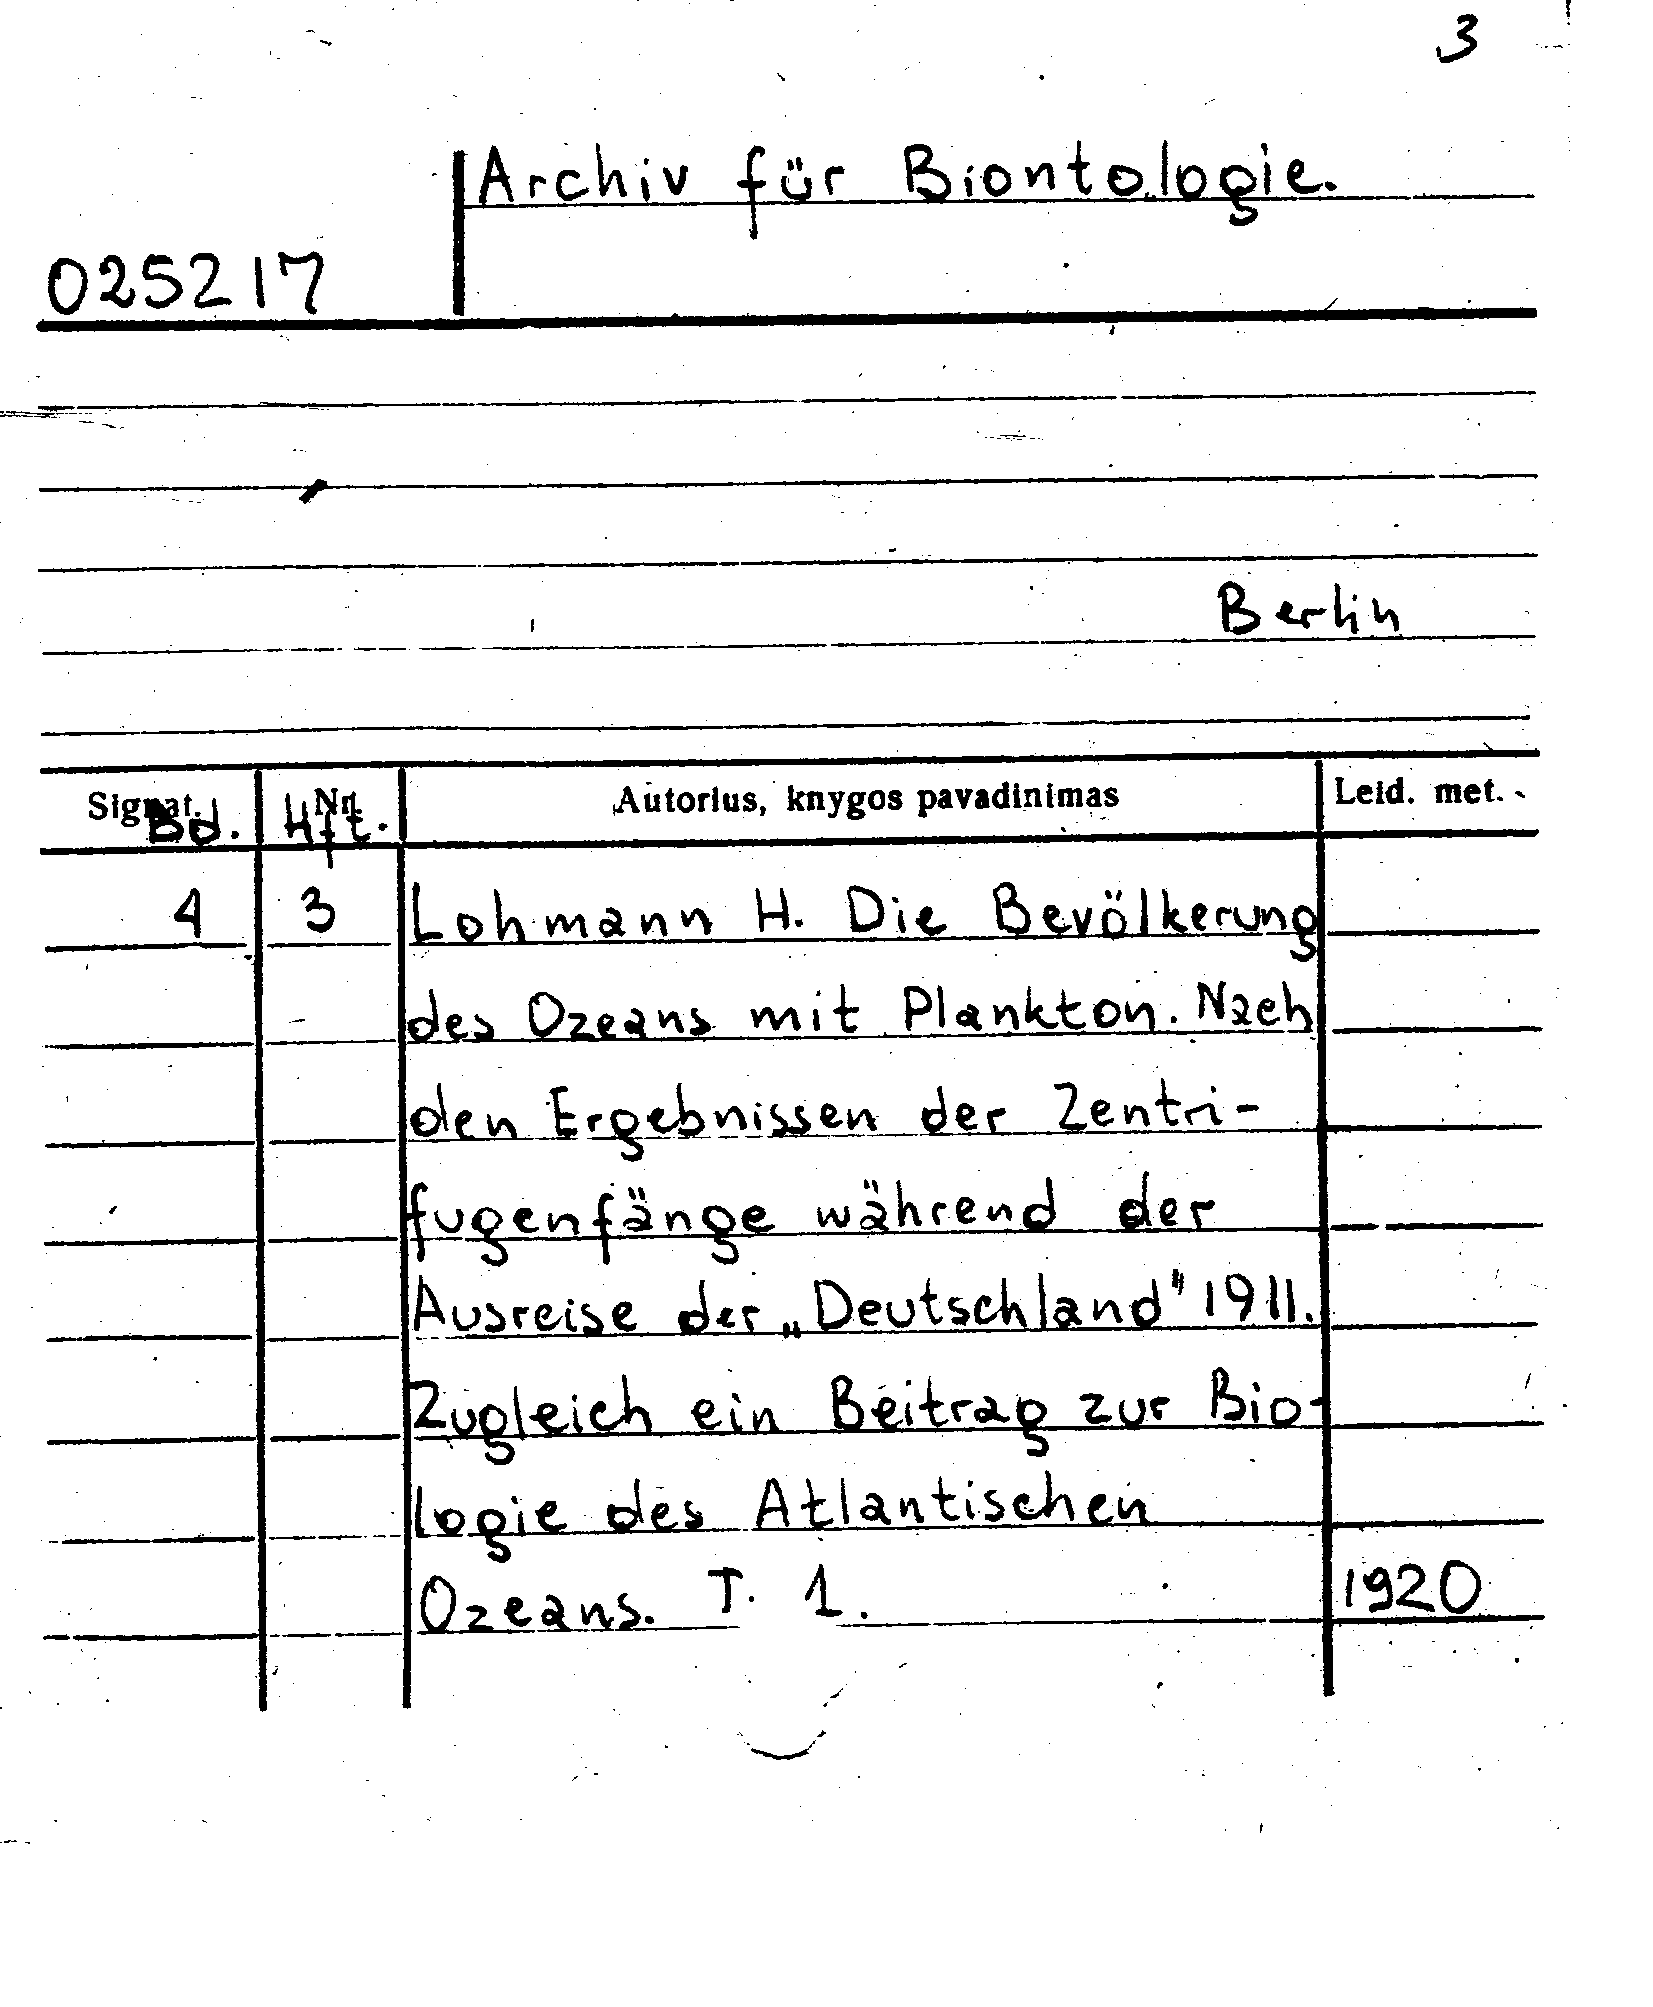 3
Archiv für Biontologie.
025217
Berlin
Signat. Nr. Autorius, knygos pavadinimas Leid. met.
Bd. Hft.
4 3 Lohmann H. Die Bevölkerung
des Ozeans mit Plankton. Nach
den Ergebnissen der Zentri-
fugenfänge während der
Ausreise der „Deutschland" 1911.
Zugleich ein Beitrag zur Bio-
logie des Atlantischen
Ozeans. T. 1. 1920